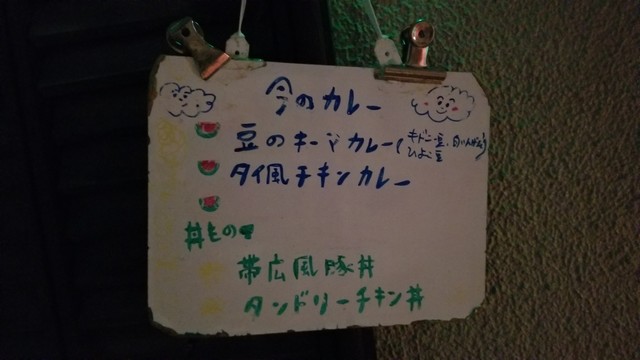 今のカレー
豆のキーマカレー(キドニー豆、白いんげん
ひよこ豆)
タイ風チキンカレー
丼もの
帯広風豚丼
タンドリーチキン丼